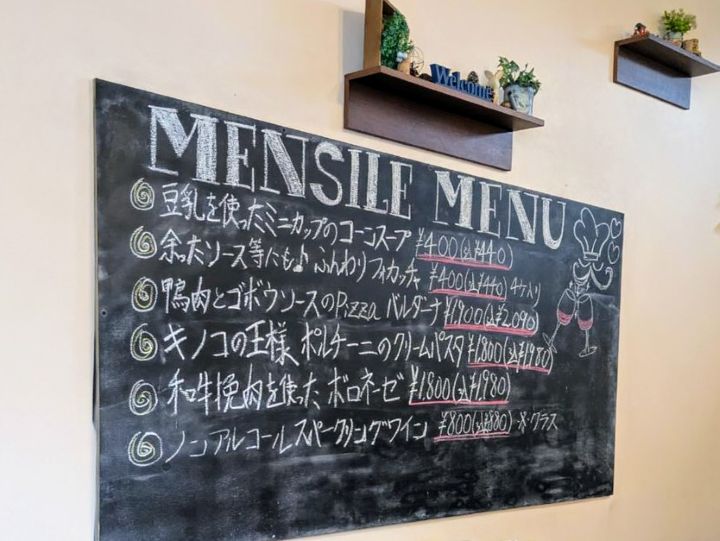 Welcome
MENSILE MENU
豆乳を使ったミニカップのコーンスープ ¥400(込¥440)
余ったソース等にも♪ ふんわりフォカッチャ ¥400(込¥440) 4ケ入り
鴨肉とゴボウソースのPizza ベルダーナ ¥1,900(込¥2,090)
キノコの王様、ポルチーニのクリームパスタ ¥1,800(込¥1,980)
和牛挽肉を使った ボロネーゼ ¥1,800(込¥1,980)
ノンアルコールスパークリングワイン ¥800(込¥880) ※グラス